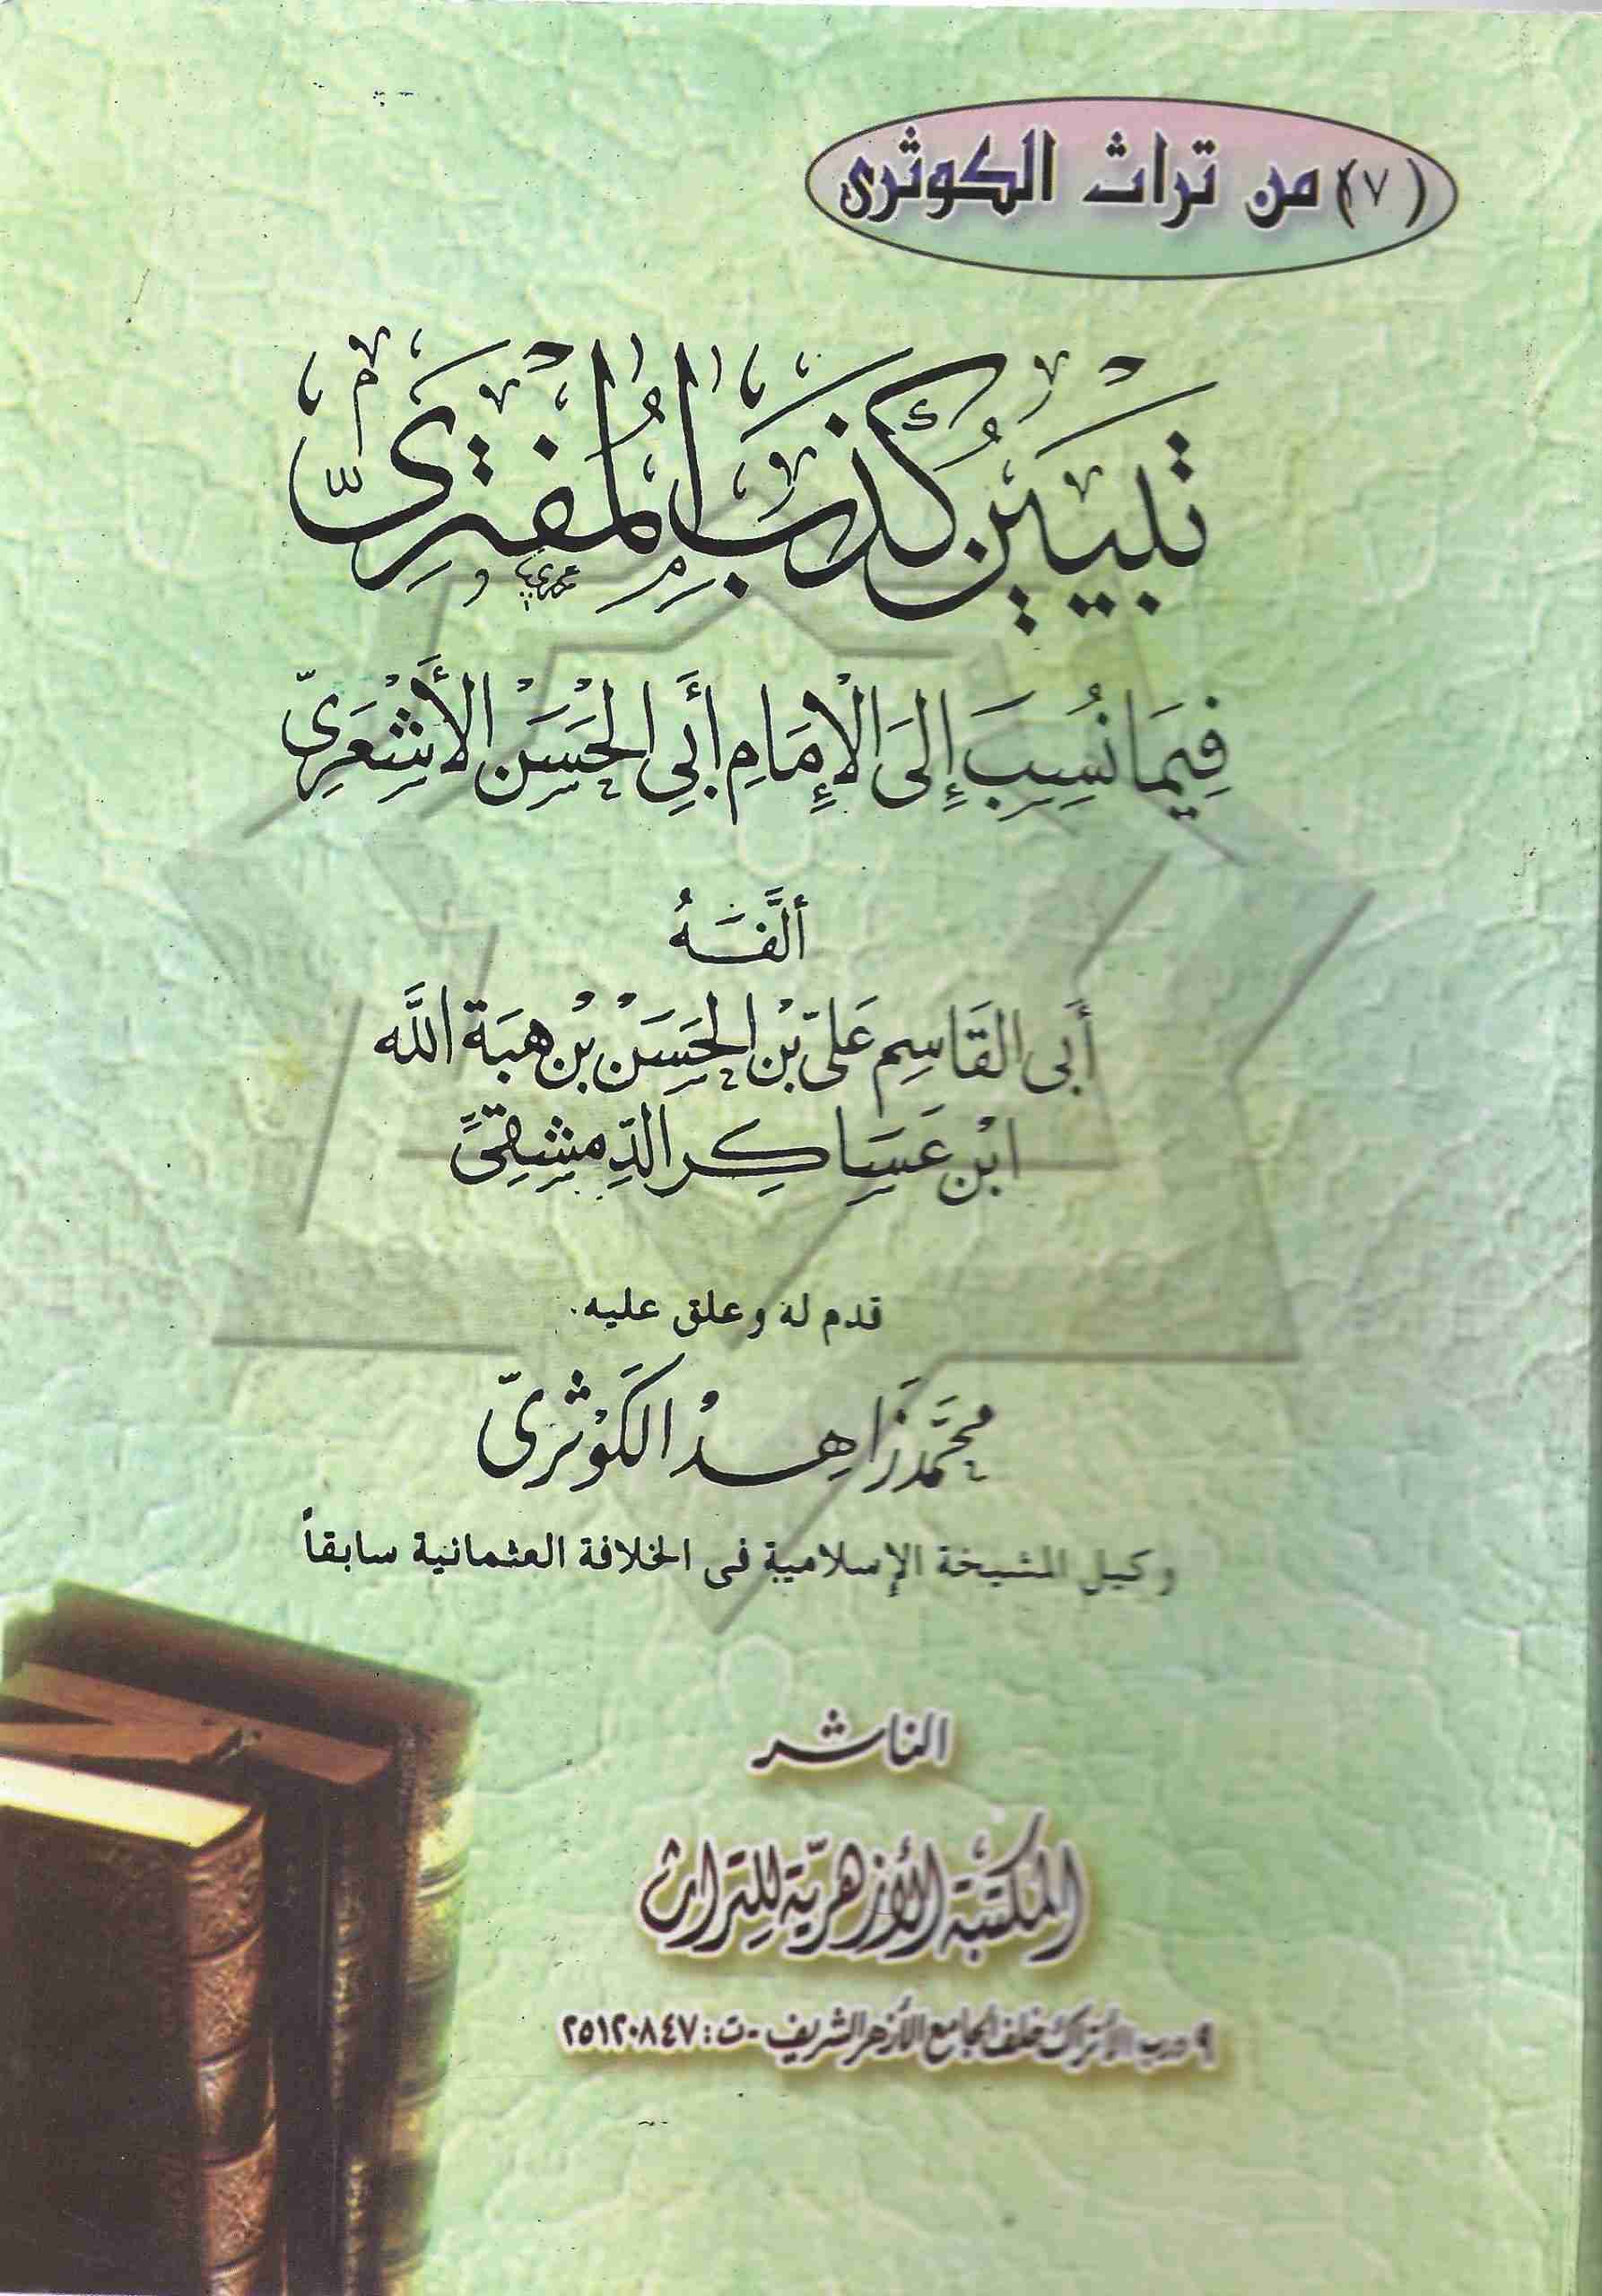 (٢٧) من تراث الكوثرى
تبيين كذب المفترى
فِيمَا نُسِبَ إِلَى الْإِمَامِ أَبِي الْحَسَنْ الْأَشْعَرِىّ
ألَّفَهُ
أَبى القَاسِم عَلىّ بْن الحَسَنْ بْن هبَة اللَّه
ابْن عَسَاكِر الدِّمشِقىّ
قدم له وعلق عليه
محَمَّد زَاهِدْ الكَوْثرىّ
وكيل المشيخة الإسلامية فى الخلافة العثمانية سابقاً
الناشر
المكتبة الأزهريّة للتراث
٩ درب الأتراك خلف الجامع الأزهر الشريف - ت: ٢٥١٢٠٨٤٧